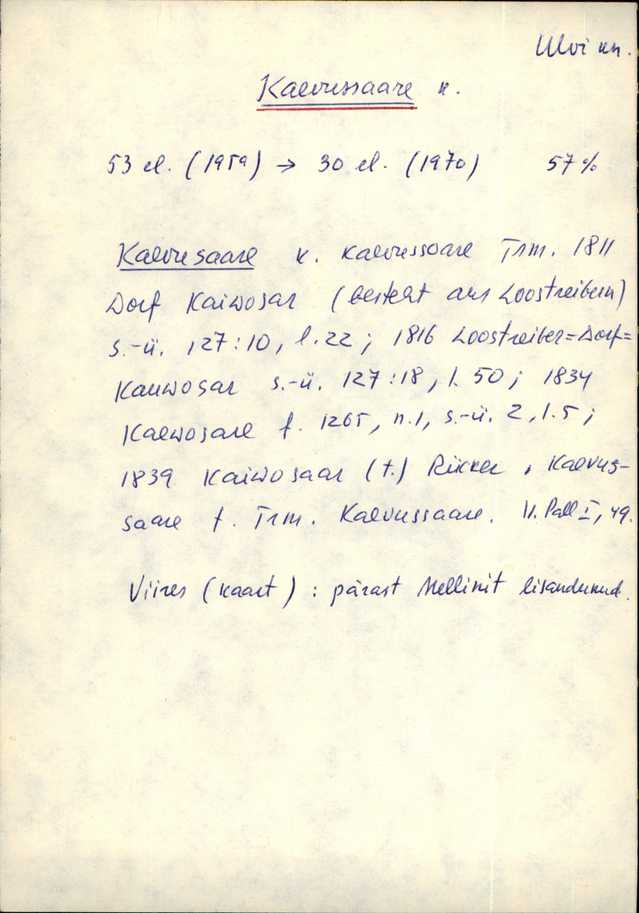 Ulvi kn.
Kaevussaare k.
53 el. (1959) → 30 el. (1970) 57%
Kaevusaare k. Kaevussoare Trm. 1811
Dorf Kaiwosar (besteht aus Loostreibern)
s.-ü. 127:10, l.22; 1816 Loostreiber=Dorf=
Kauwosar s.-ü. 127:18, l. 50; 1834
Kaewosare f. 1265, n.1, s.-ü. 2, l.5;
1839 Kaiwosaar (t.) Rücker, Kaevus-
saare t. Trm. Kaevussaare. V. Pall I, 49.
Viires (kaart): pärast Mellinit lisandunud.